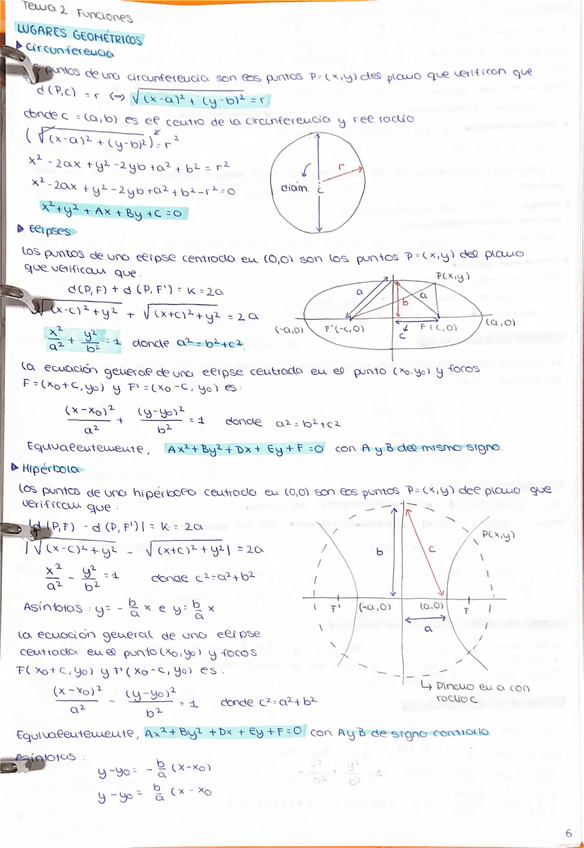 Tema 2 Funciones
LUGARES GEOMÉTRICOS
▸ Circunferencia
puntos de una circunferencia son los puntos P=(x,y) del plano que verifican que
d(P,C) = r ⟺ √(x-a)² + (y-b)² = r
donde c = (a,b) es el centro de la circunferencia y r el radio.
(√(x-a)² + (y-b)²)² = r²
x² - 2ax + y² - 2yb + a² + b² = r²
x² - 2ax + y² - 2yb + a² + b² - r² = 0
x² + y² + Ax + By + C = 0
r
diám.
c
▸ Elipses
Los puntos de una elipse centrada en (0,0) son los puntos P=(x,y) del plano
que verifican que:
d(P,F) + d(P,F') = k = 2a
√(x-c)² + y² + √(x+c)² + y² = 2a
x²/a² + y²/b² = 1 donde a² = b² + c²
P(x,y)
a
b
a
(-a,0)
F'(-c,0)
c
F(c,0)
(a,0)
La ecuación general de una elipse centrada en el punto (x₀,y₀) y focos
F=(x₀+c, y₀) y F'=(x₀-c, y₀) es:
(x-x₀)²/a² + (y-y₀)²/b² = 1 donde a² = b² + c²
Equivalentemente, Ax² + By² + Dx + Ey + F = 0 con A y B del mismo signo.
▸ Hipérbola
Los puntos de una hipérbola centrada en (0,0) son los puntos P=(x,y) del plano que
verifican que:
|d(P,F) - d(P,F')| = k = 2a
|√(x-c)² + y² - √(x+c)² + y²| = 2a
x²/a² - y²/b² = 1 donde c² = a² + b²
Asíntotas: y = - b/a x e y = b/a x
P(x,y)
b
c
F'
(-a,0)
(a,0)
F
a
↳ Pincho en a con
radio c
La ecuación general de una elipse
centrada en el punto (x₀,y₀) y focos
F(x₀+c, y₀) y F'(x₀-c, y₀) es:
(x-x₀)²/a² - (y-y₀)²/b² = 1 donde c² = a² + b²
Equivalentemente, Ax² + By² + Dx + Ey + F = 0 con A y B de signo contrario
Asíntotas:
y-y₀ = - b/a (x-x₀)
y-y₀ = b/a (x-x₀
6